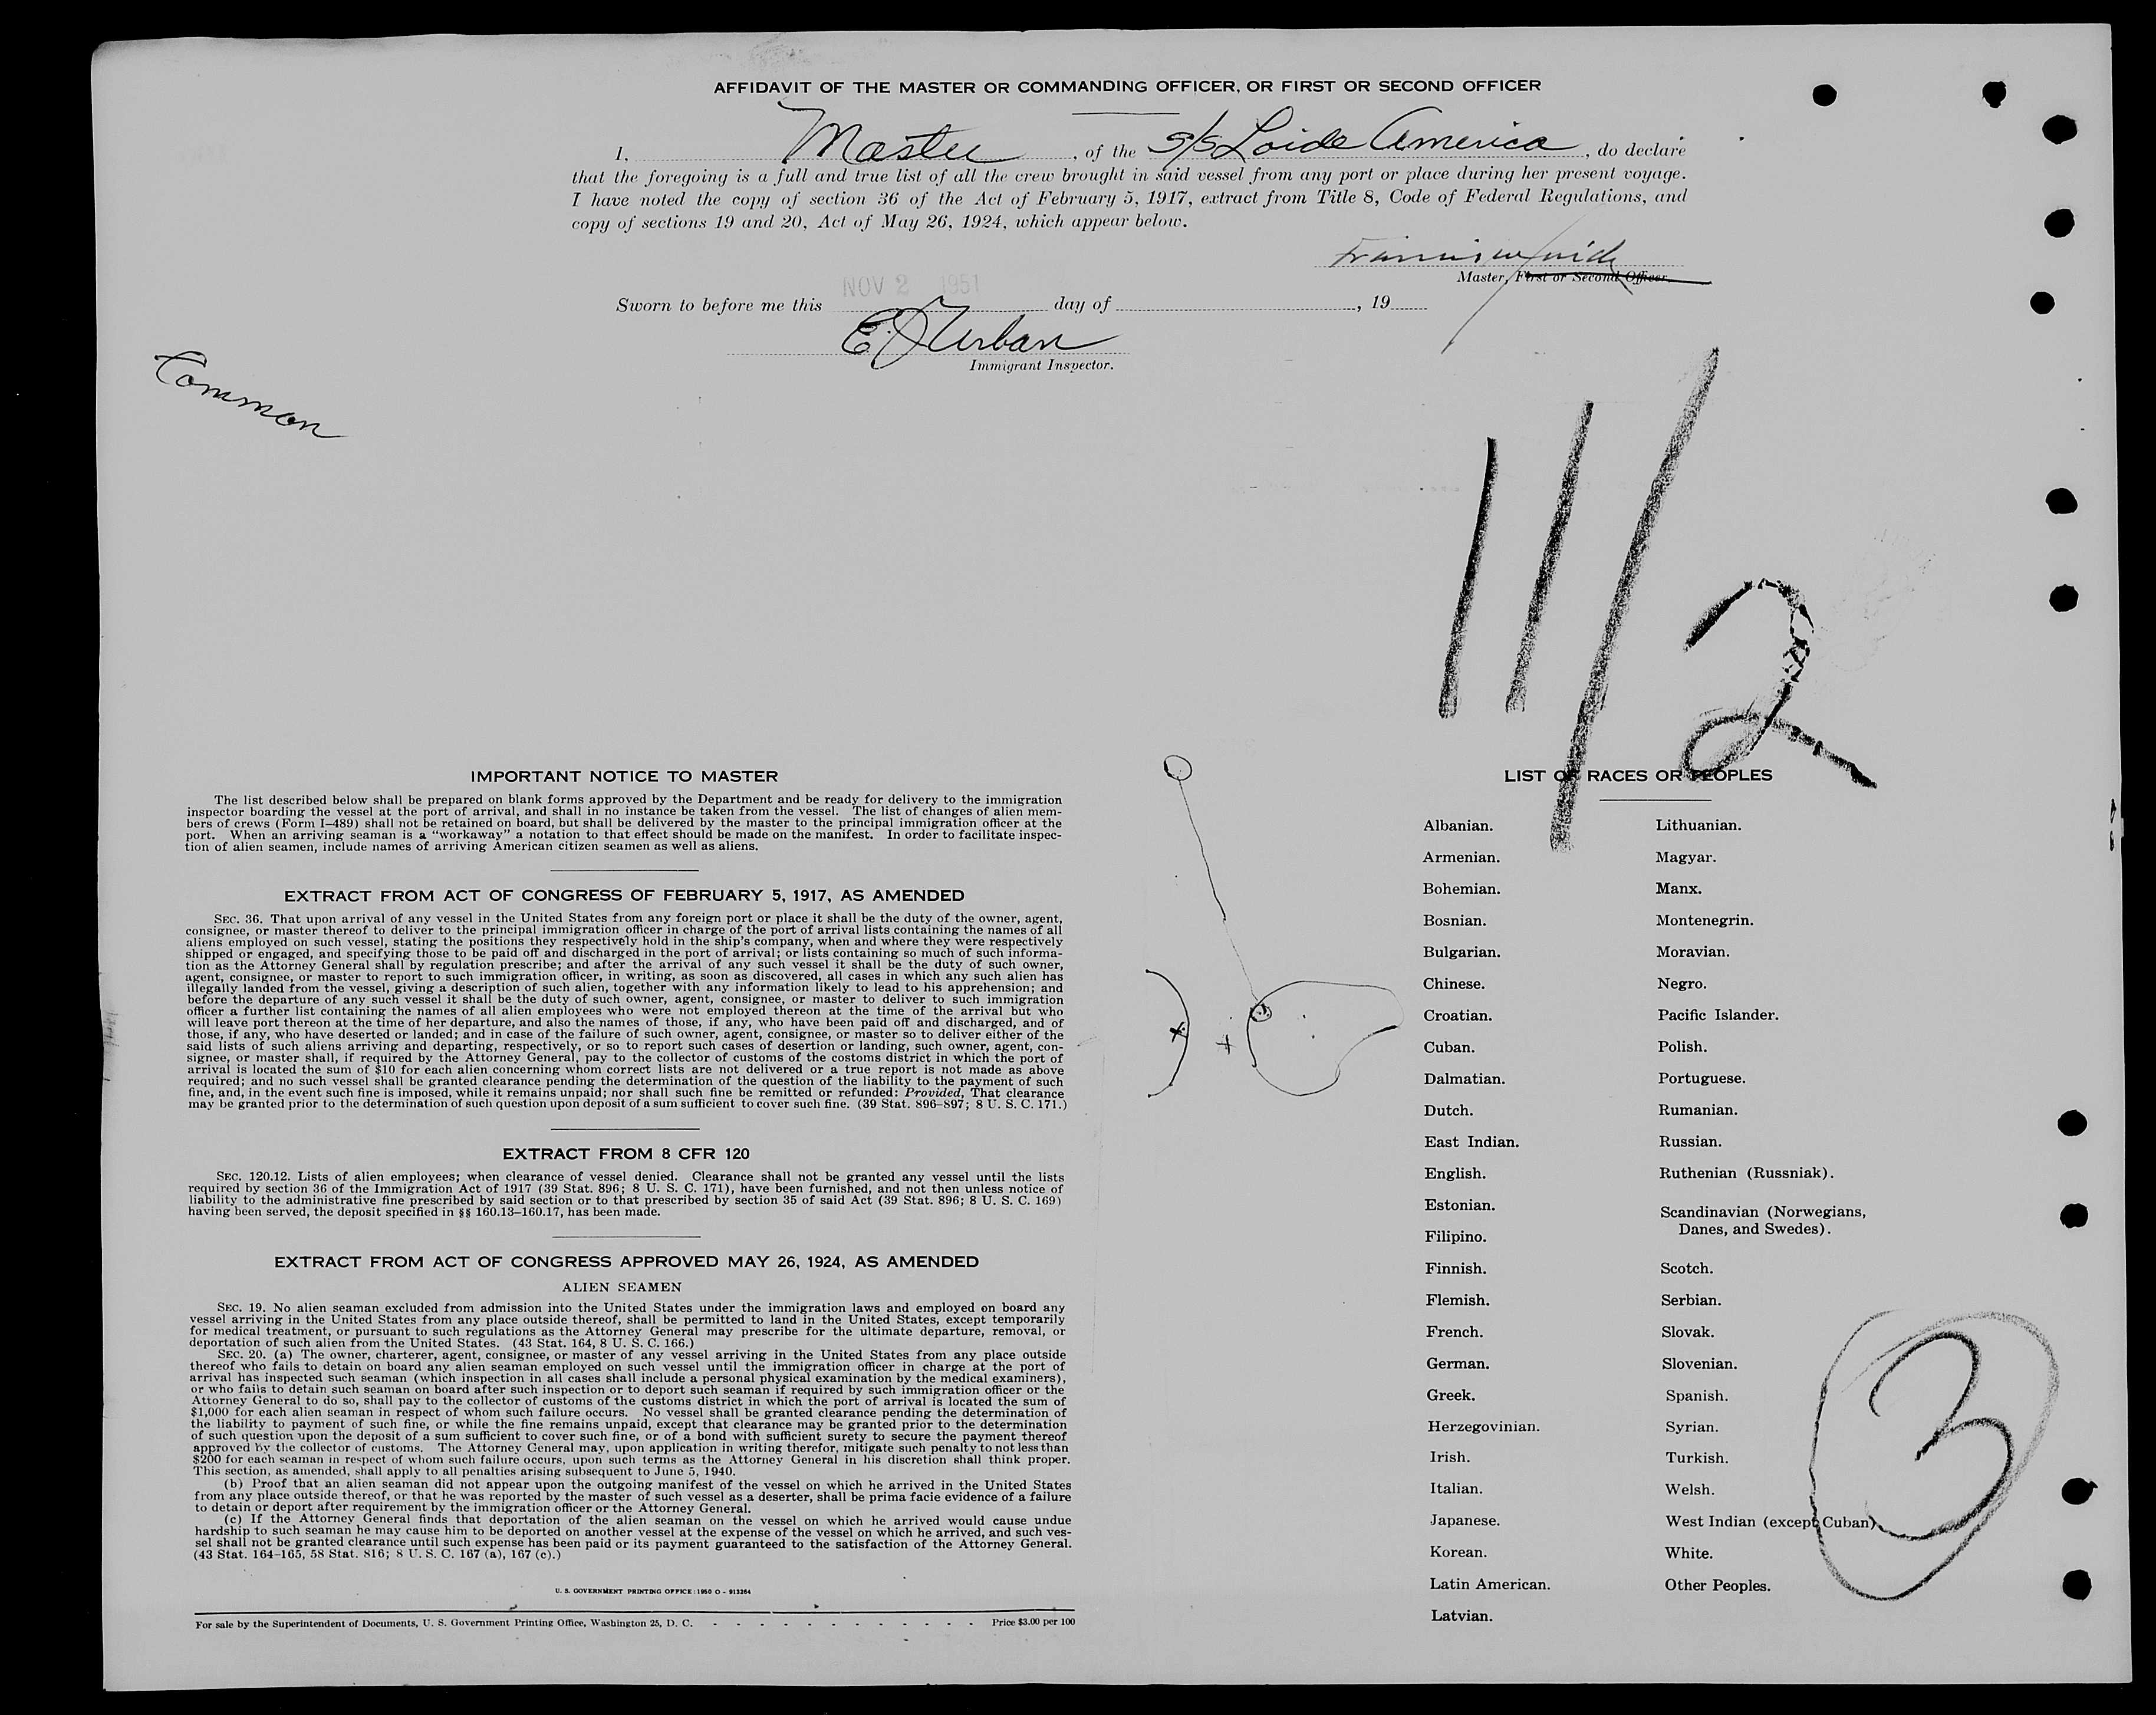 AFFIDAVIT OF THE MASTER OR COMMANDING OFFICER, OR FIRST OR SECOND OFFICER
I, Master, of the S/S Loide America, do declare
that the foregoing is a full and true list of all the crew brought in said vessel from any port or place during her present voyage.
I have noted the copy of section 36 of the Act of February 5, 1917, extract from Title 8, Code of Federal Regulations, and
copy of sections 19 and 20, Act of May 26, 1924, which appear below.
Master, First or Second Officer.
NOV 2 1951
Sworn to before me this day of , 19
E J Urban
Immigrant Inspector.
Common
11/2
IMPORTANT NOTICE TO MASTER
The list described below shall be prepared on blank forms approved by the Department and be ready for delivery to the immigration
inspector boarding the vessel at the port of arrival, and shall in no instance be taken from the vessel. The list of changes of alien mem-
bers of crews (Form I-489) shall not be retained on board, but shall be delivered by the master to the principal immigration officer at the
port. When an arriving seaman is a "workaway" a notation to that effect should be made on the manifest. In order to facilitate inspec-
tion of alien seamen, include names of arriving American citizen seamen as well as aliens.
EXTRACT FROM ACT OF CONGRESS OF FEBRUARY 5, 1917, AS AMENDED
SEC. 36. That upon arrival of any vessel in the United States from any foreign port or place it shall be the duty of the owner, agent,
consignee, or master thereof to deliver to the principal immigration officer in charge of the port of arrival lists containing the names of all
aliens employed on such vessel, stating the positions they respectively hold in the ship's company, when and where they were respectively
shipped or engaged, and specifying those to be paid off and discharged in the port of arrival; or lists containing so much of such informa-
tion as the Attorney General shall by regulation prescribe; and after the arrival of any such vessel it shall be the duty of such owner,
agent, consignee, or master to report to such immigration officer, in writing, as soon as discovered, all cases in which any such alien has
illegally landed from the vessel, giving a description of such alien, together with any information likely to lead to his apprehension; and
before the departure of any such vessel it shall be the duty of such owner, agent, consignee, or master to deliver to such immigration
officer a further list containing the names of all alien employees who were not employed thereon at the time of the arrival but who
will leave port thereon at the time of her departure, and also the names of those, if any, who have been paid off and discharged, and of
those, if any, who have deserted or landed; and in case of the failure of such owner, agent, consignee, or master so to deliver either of the
said lists of such aliens arriving and departing, respectively, or so to report such cases of desertion or landing, such owner, agent, con-
signee, or master shall, if required by the Attorney General, pay to the collector of customs of the customs district in which the port of
arrival is located the sum of $10 for each alien concerning whom correct lists are not delivered or a true report is not made as above
required; and no such vessel shall be granted clearance pending the determination of the question of the liability to the payment of such
fine, and, in the event such fine is imposed, while it remains unpaid; nor shall such fine be remitted or refunded: Provided, That clearance
may be granted prior to the determination of such question upon deposit of a sum sufficient to cover such fine. (39 Stat. 896-897; 8 U. S. C. 171.)
EXTRACT FROM 8 CFR 120
SEC. 120.12. Lists of alien employees; when clearance of vessel denied. Clearance shall not be granted any vessel until the lists
required by section 36 of the Immigration Act of 1917 (39 Stat. 896; 8 U. S. C. 171), have been furnished, and not then unless notice of
liability to the administrative fine prescribed by said section or to that prescribed by section 35 of said Act (39 Stat. 896; 8 U. S. C. 169)
having been served, the deposit specified in §§ 160.13-160.17, has been made.
EXTRACT FROM ACT OF CONGRESS APPROVED MAY 26, 1924, AS AMENDED
ALIEN SEAMEN
SEC. 19. No alien seaman excluded from admission into the United States under the immigration laws and employed on board any
vessel arriving in the United States from any place outside thereof, shall be permitted to land in the United States, except temporarily
for medical treatment, or pursuant to such regulations as the Attorney General may prescribe for the ultimate departure, removal, or
deportation of such alien from the United States. (43 Stat. 164, 8 U. S. C. 166.)
SEC. 20. (a) The owner, charterer, agent, consignee, or master of any vessel arriving in the United States from any place outside
thereof who fails to detain on board any alien seaman employed on such vessel until the immigration officer in charge at the port of
arrival has inspected such seaman (which inspection in all cases shall include a personal physical examination by the medical examiners),
or who fails to detain such seaman on board after such inspection or to deport such seaman if required by such immigration officer or the
Attorney General to do so, shall pay to the collector of customs of the customs district in which the port of arrival is located the sum of
$1,000 for each alien seaman in respect of whom such failure occurs. No vessel shall be granted clearance pending the determination of
the liability to payment of such fine, or while the fine remains unpaid, except that clearance may be granted prior to the determination
of such question upon the deposit of a sum sufficient to cover such fine, or of a bond with sufficient surety to secure the payment thereof
approved by the collector of customs. The Attorney General may, upon application in writing therefor, mitigate such penalty to not less than
$200 for each seaman in respect of whom such failure occurs, upon such terms as the Attorney General in his discretion shall think proper.
This section, as amended, shall apply to all penalties arising subsequent to June 5, 1940.
(b) Proof that an alien seaman did not appear upon the outgoing manifest of the vessel on which he arrived in the United States
from any place outside thereof, or that he was reported by the master of such vessel as a deserter, shall be prima facie evidence of a failure
to detain or deport after requirement by the immigration officer or the Attorney General.
(c) If the Attorney General finds that deportation of the alien seaman on the vessel on which he arrived would cause undue
hardship to such seaman he may cause him to be deported on another vessel at the expense of the vessel on which he arrived, and such ves-
sel shall not be granted clearance until such expense has been paid or its payment guaranteed to the satisfaction of the Attorney General.
(43 Stat. 164-165, 58 Stat. 816; 8 U. S. C. 167 (a), 167 (c).)
U. S. GOVERNMENT PRINTING OFFICE : 1950 O - 913264
For sale by the Superintendent of Documents, U. S. Government Printing Office, Washington 25, D. C. - - - - - - - - - - - - Price $3.00 per 100
LIST OF RACES OR PEOPLES
Albanian.
Armenian.
Bohemian.
Bosnian.
Bulgarian.
Chinese.
Croatian.
Cuban.
Dalmatian.
Dutch.
East Indian.
English.
Estonian.
Filipino.
Finnish.
Flemish.
French.
German.
Greek.
Herzegovinian.
Irish.
Italian.
Japanese.
Korean.
Latin American.
Latvian.
Lithuanian.
Magyar.
Manx.
Montenegrin.
Moravian.
Negro.
Pacific Islander.
Polish.
Portuguese.
Rumanian.
Russian.
Ruthenian (Russniak).
Scandinavian (Norwegians,
Danes, and Swedes).
Scotch.
Serbian.
Slovak.
Slovenian.
Spanish.
Syrian.
Turkish.
Welsh.
West Indian (except Cuban).
White.
Other Peoples.
3